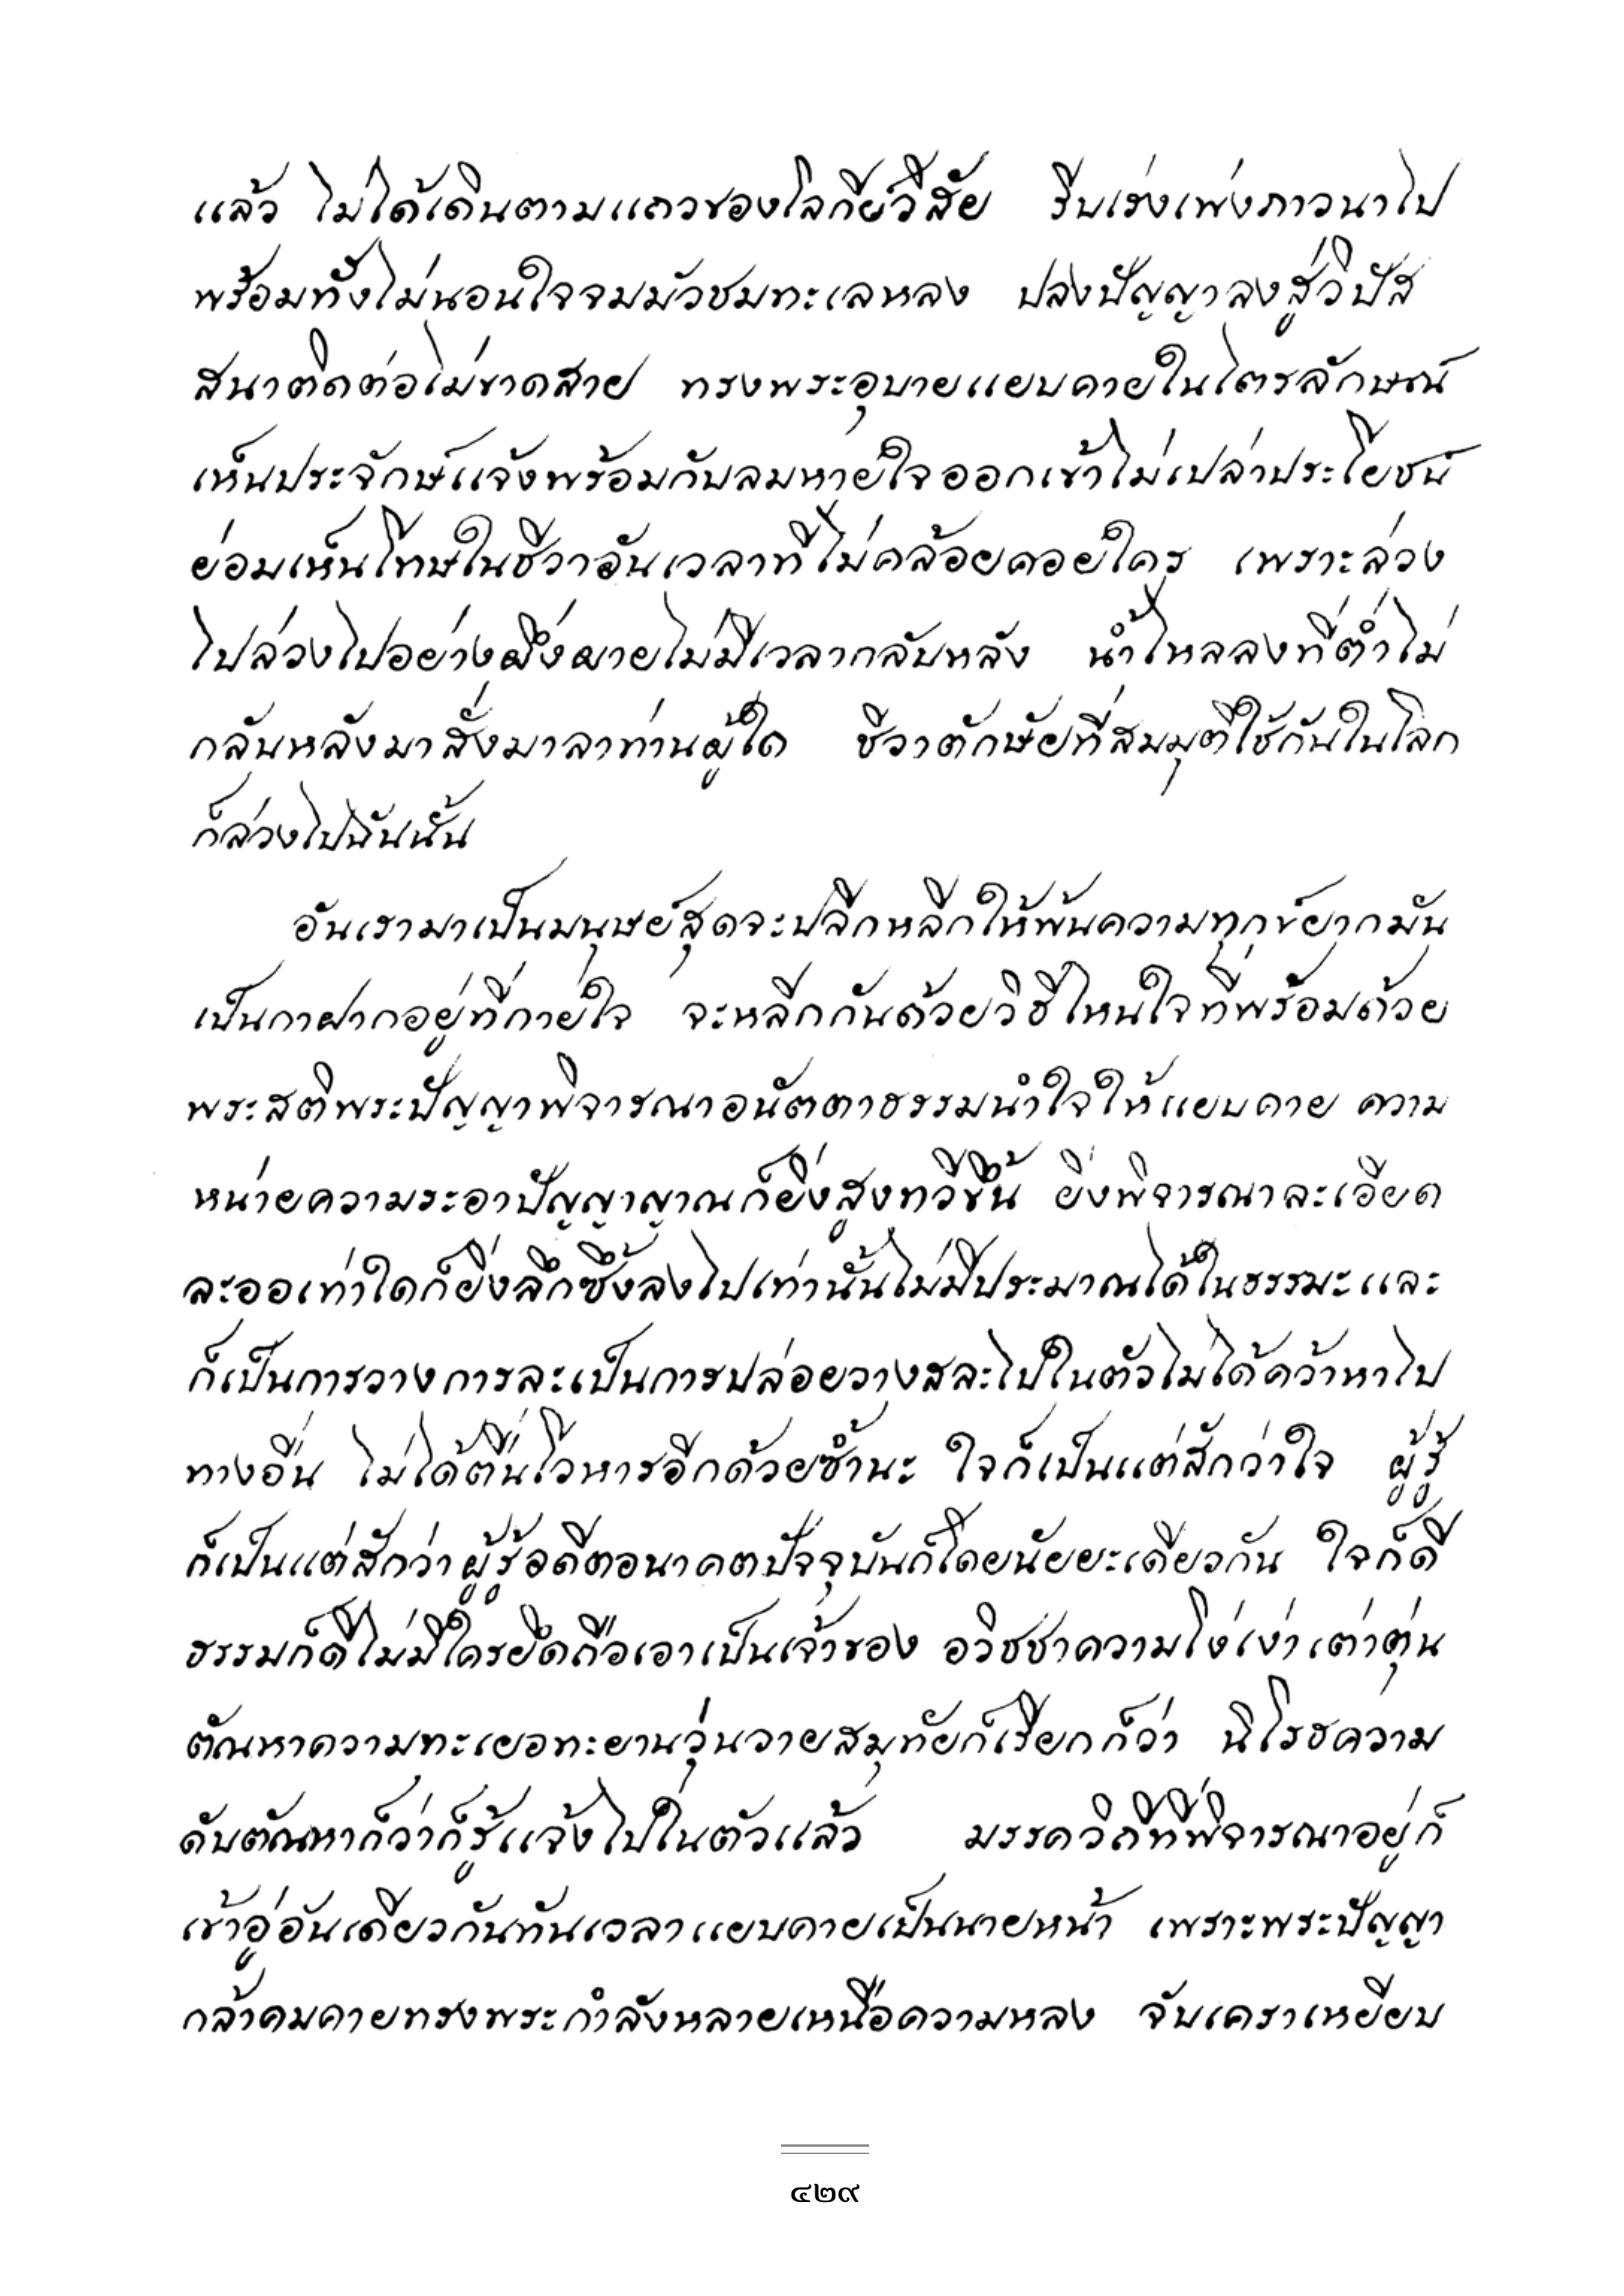 แล้ว ไม่ได้เดินตามแถวของโลกีย์วิสัย รีบเร่งเพ่งภาวนาไป
พร้อมทั้งไม่นอนใจจมมัวชมทะเลหลง ปลงปัญญาลงสู่วิปัส
สนาติดต่อไม่ขาดสาย ทรงพระอุบายแยบคายในไตรลักษณ์
เห็นประจักษ์แจ้งพร้อมกับลมหายใจออกเข้าไม่เปล่าประโยชน์
ย่อมเห็นโทษในชีวาอันเวลาที่ไม่คล้อยคอยใคร เพราะล่วง
ไปล่วงไปอย่างผึ่งผายไม่มีเวลากลับหลัง น้ำไหลลงที่ต่ำไม่
กลับหลังมาสั่งมาลาท่านผู้ใด ชีวาตักษัยที่สมมุติใช้กันในโลก
ก็ล่วงไปฉันนั้น
อันเรามาเป็นมนุษย์สุดจะปลีกหลีกให้พ้นความทุกข์ยากมัน
เป็นกาฝากอยู่ที่กายใจ จะหลีกกันด้วยวิธีไหนใจที่พร้อมด้วย
พระสติพระปัญญาพิจารณาอนัตตาธรรมนำใจให้แยบคาย ความ
หน่ายความระอาปัญญาญาณก็ยิ่งสูงทวีขึ้น ยิ่งพิจารณาละเอียด
ละออเท่าใดก็ยิ่งลึกซึ้งลงไปเท่านั้นไม่มีประมาณได้ในธรรมะและ
ก็เป็นการวางการละเป็นการปล่อยวางสละไปในตัวไม่ได้คว้าหาไป
ทางอื่น ไม่ได้ตื่นโวหารอีกด้วยซ้ำนะ ใจก็เป็นแต่สักว่าใจ ผู้รู้
ก็เป็นแต่สักว่าผู้รู้อดีตอนาคตปัจจุบันก็โดยนัยยะเดียวกัน ใจก็ดี
ธรรมก็ดีไม่มีใครยึดถือเอาเป็นเจ้าของ อวิชชาความโง่เง่าเต่าตุ่น
ตัณหาความทะเยอทะยานวุ่นวายสมุทัยก็เรียกก็ว่า นิโรธความ
ดับตัณหาก็ว่าก็รู้แจ้งไปในตัวแล้ว มรรควิถีที่พิจารณาอยู่ก็
เข้าอู่อันเดียวกันทันเวลาแยบคายเป็นนายหน้า เพราะพระปัญญา
กล้าคมคายทรงพระกำลังหลายเหนือความหลง จับเคราเหยียบ
๔๒๙